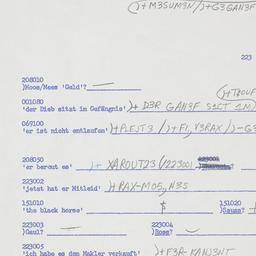 )+M3SUM3N/)+G3GAN3F
223
208010
)Moos/Mees 'Geld'? —
)+TZOUF
001080
'der Dieb sitzt im Gefängnis' )+ D3R GAN3F S1CT 1M)
069100
'er ist nicht entlaufen' )+PLEJT3 /)+F1, V3RAX/)-G3
208050
'er beraut es' )+ XAROUTZ3(/223001
223002
'jetzt hat er Mitleid' )+RAX-MO5,N3S
151010
'the black horse' $
151020
)Gauss? +
223003
)Gaul? —
223004
)Ross?
223005
'ich habe es dem Makler verkauft' )+F3R-KAN3NT